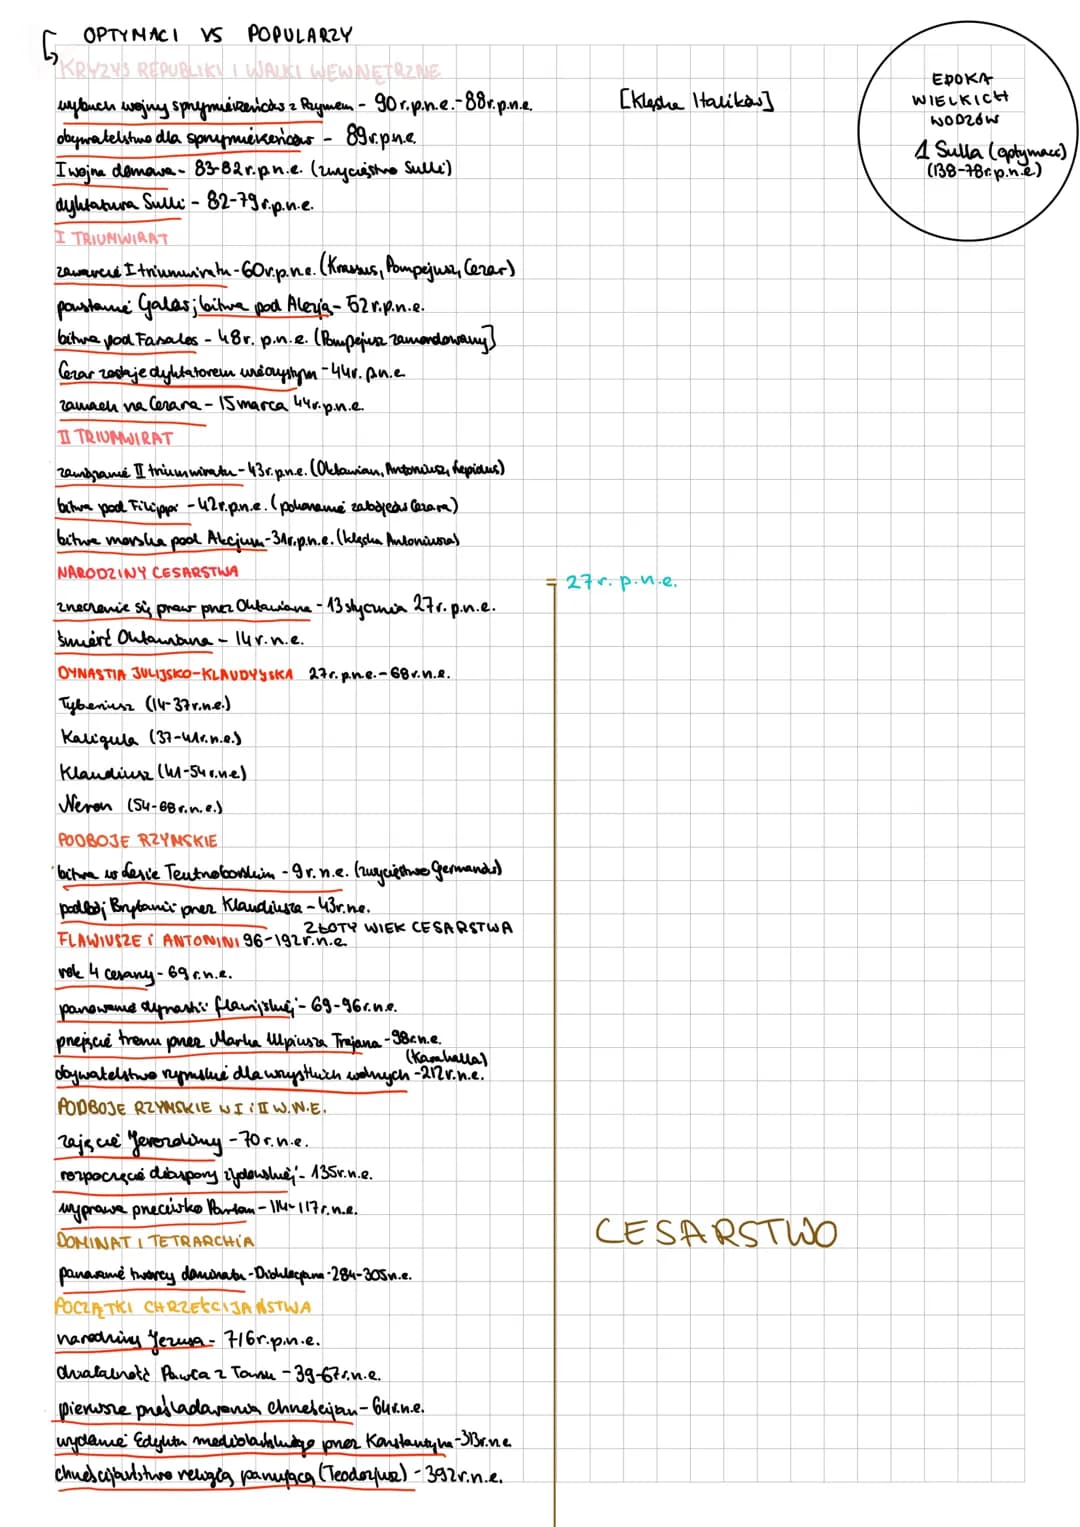 OPTYMACI VS POPULARZY
KRYZYS REPUBLIKI I WALKI WEWNĘTRZNE
wybuch wojny sprzymierzeńców z Rzymem - 90 r.p.n.e.-88r.p.n.e. [Klęska Italików]
obywatelstwo dla sprzymierzeńców - 89r.p.n.e.
I wojna domowa - 83-82r.p.n.e. (zwycięstwo Sulli)
dyktatura Sulli - 82-79r.p.n.e.
EPOKA
WIELKICH
WODZÓW
1 Sulla (optymaci)
(138-78r.p.n.e.)
I TRIUMWIRAT
zawarcie I triumwiratu - 60r.p.n.e. (Krassus, Pompejusz, Cezar)
powstanie Galów; bitwa pod Alezją - 52r.p.n.e.
bitwa pod Farsalos - 48r. p.n.e. (Pompejusz zamordowany]
Cezar zostaje dyktatorem wieczystym - 44r. p.n.e.
zamach na Cezara - 15 marca 44r.p.n.e.
II TRIUMWIRAT
zawiązanie II triumwiratu - 43r.p.n.e. (Oktawian, Antoniusz, Lepidus)
bitwa pod Filippi - 42r.p.n.e. (pokonanie zabójców Cezara)
bitwa morska pod Akcjum - 31r.p.n.e. (klęska Antoniusza)
NARODZINY CESARSTWA
= 27r. p.n.e.
zrzeczenie się praw przez Oktawiana - 13 stycznia 27r. p.n.e.
śmierć Oktawiana - 14r.n.e.
DYNASTIA JULIJSKO-KLAUDYJSKA 27r.p.n.e.-68r.n.e.
Tyberiusz (14-37r.n.e.)
Kaligula (37-41r.n.e.)
Klaudiusz (41-54r.n.e)
Neron (54-68r.n.e.)
PODBOJE RZYMSKIE
bitwa w Lesie Teutoborskim - 9r.n.e. (zwycięstwo Germanów)
podbój Brytanii przez Klaudiusza - 43r.n.e.
ZŁOTY WIEK CESARSTWA
FLAWIUSZE i ANTONINI 96-192r.n.e.
rok 4 cesarzy - 69r.n.e.
panowanie dynastii flawijskiej - 69-96r.n.e.
przejęcie tronu przez Marka Ulpiusza Trajana - 98r.n.e.
(Karakalla)
obywatelstwo rzymskie dla wszystkich wolnych - 212r.n.e.
PODBOJE RZYMSKIE W I i II W.N.E.
zajęcie Jerozolimy - 70r.n.e.
rozpoczęcie diaspory żydowskiej - 135r.n.e.
wyprawa przeciwko Partom - 114-117r.n.e.
CESARSTWO
DOMINAT I TETRARCHIA
panowanie twórcy dominatu - Dioklecjana - 284-305n.e.
POCZĄTKI CHRZEŚCIJAŃSTWA
narodziny Jezusa - 7/6r.p.n.e.
działalność Pawła z Tarsu - 39-67r.n.e.
pierwsze prześladowania chrześcijan - 64r.n.e.
wydanie Edyktu mediolańskiego przez Konstantyna - 313r.n.e
chrześcijaństwo religią panującą (Teodozjusz) - 392r.n.e.